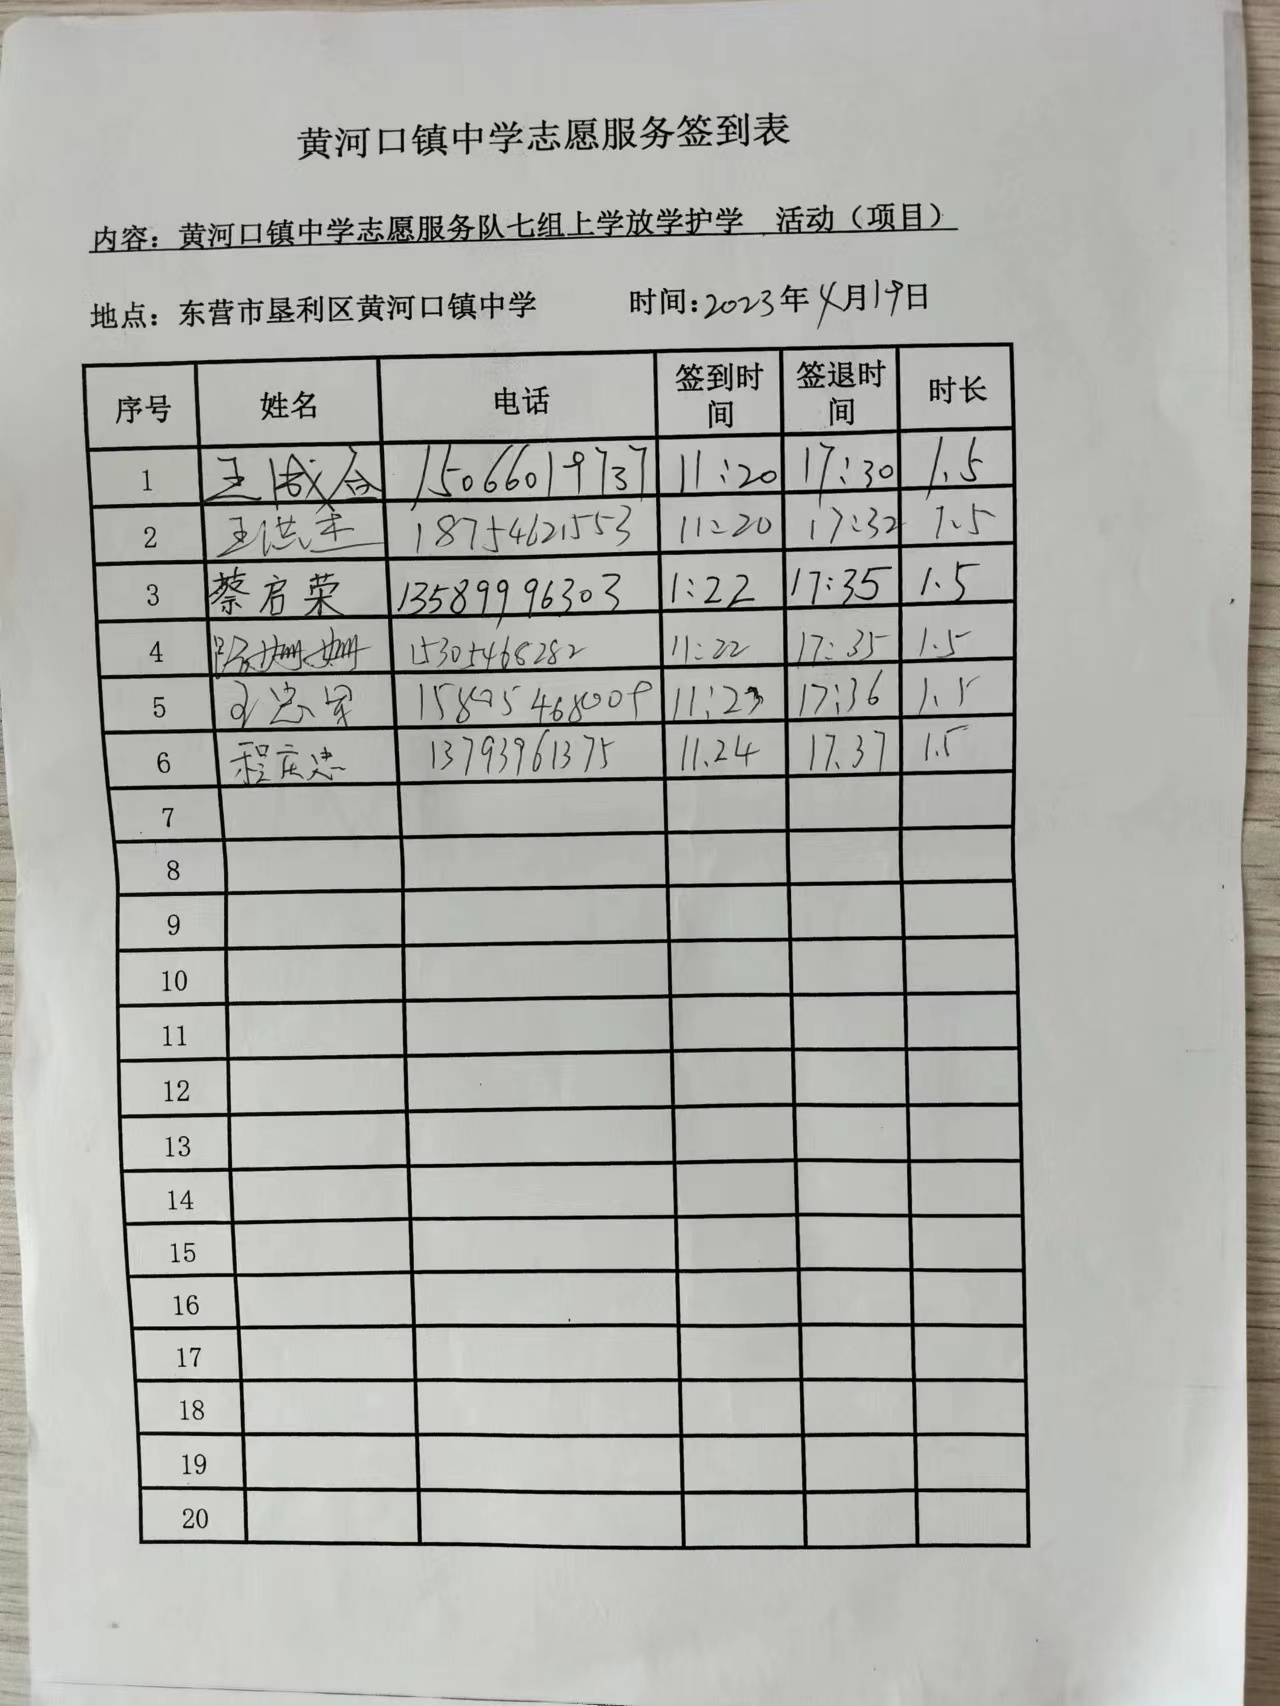 黄河口镇中学志愿服务签到表
内容：黄河口镇中学志愿服务队七组上学放学护学 活动（项目）
地点：东营市垦利区黄河口镇中学 时间：2023年4月19日
序号 姓名 电话 签到时间 签退时间 时长
1 王成合 15066019737 11:20 17:30 1.5
2 王洪圭 18754621553 11:20 17:32 1.5
3 蔡启荣 13589996303 1:22 17:35 1.5
4 珊珊 15305468282 11:22 17:35 1.5
5 王忠 11:23 17:36 1.5
6 程庆忠 13793961375 11.24 17.37 1.5
7
8
9
10
11
12
13
14
15
16
17
18
19
20